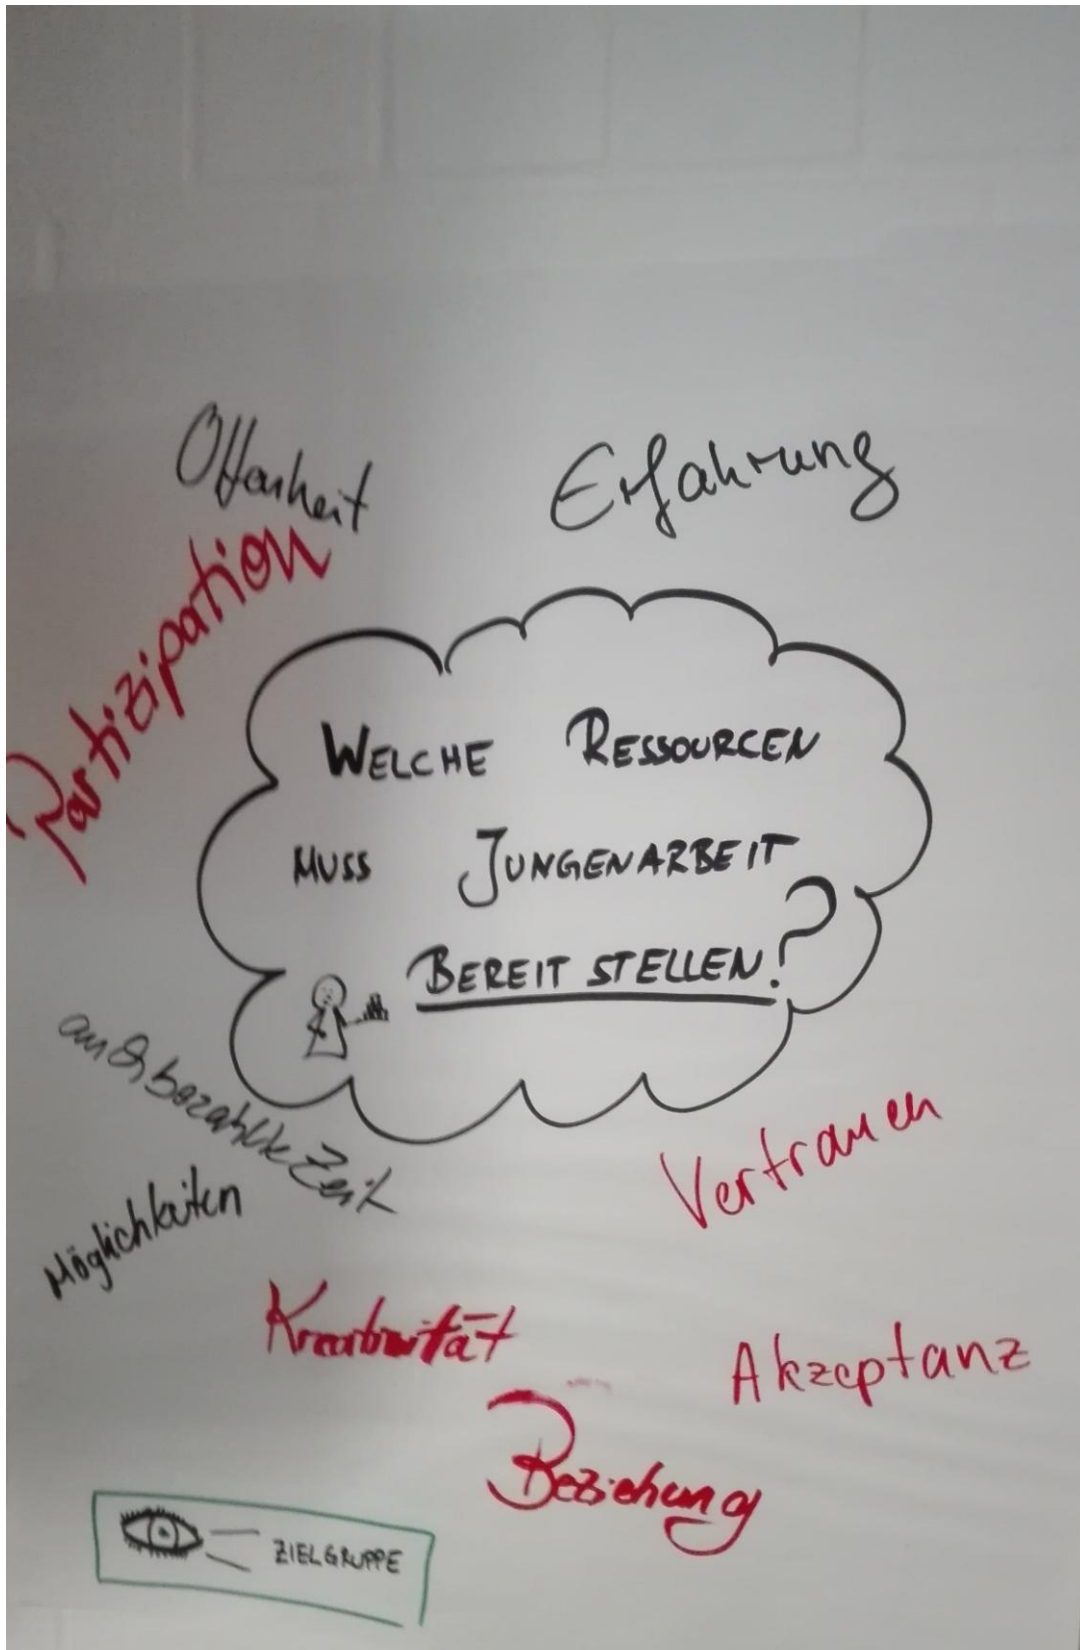 Offenheit
Erfahrung
Partizipation
WELCHE RESSOURCEN
MUSS JUNGENARBEIT
BEREIT STELLEN?
bezahlte Zeit
Möglichkeiten
Vertrauen
Kreativität
Akzeptanz
Beziehung
ZIELGRUPPE